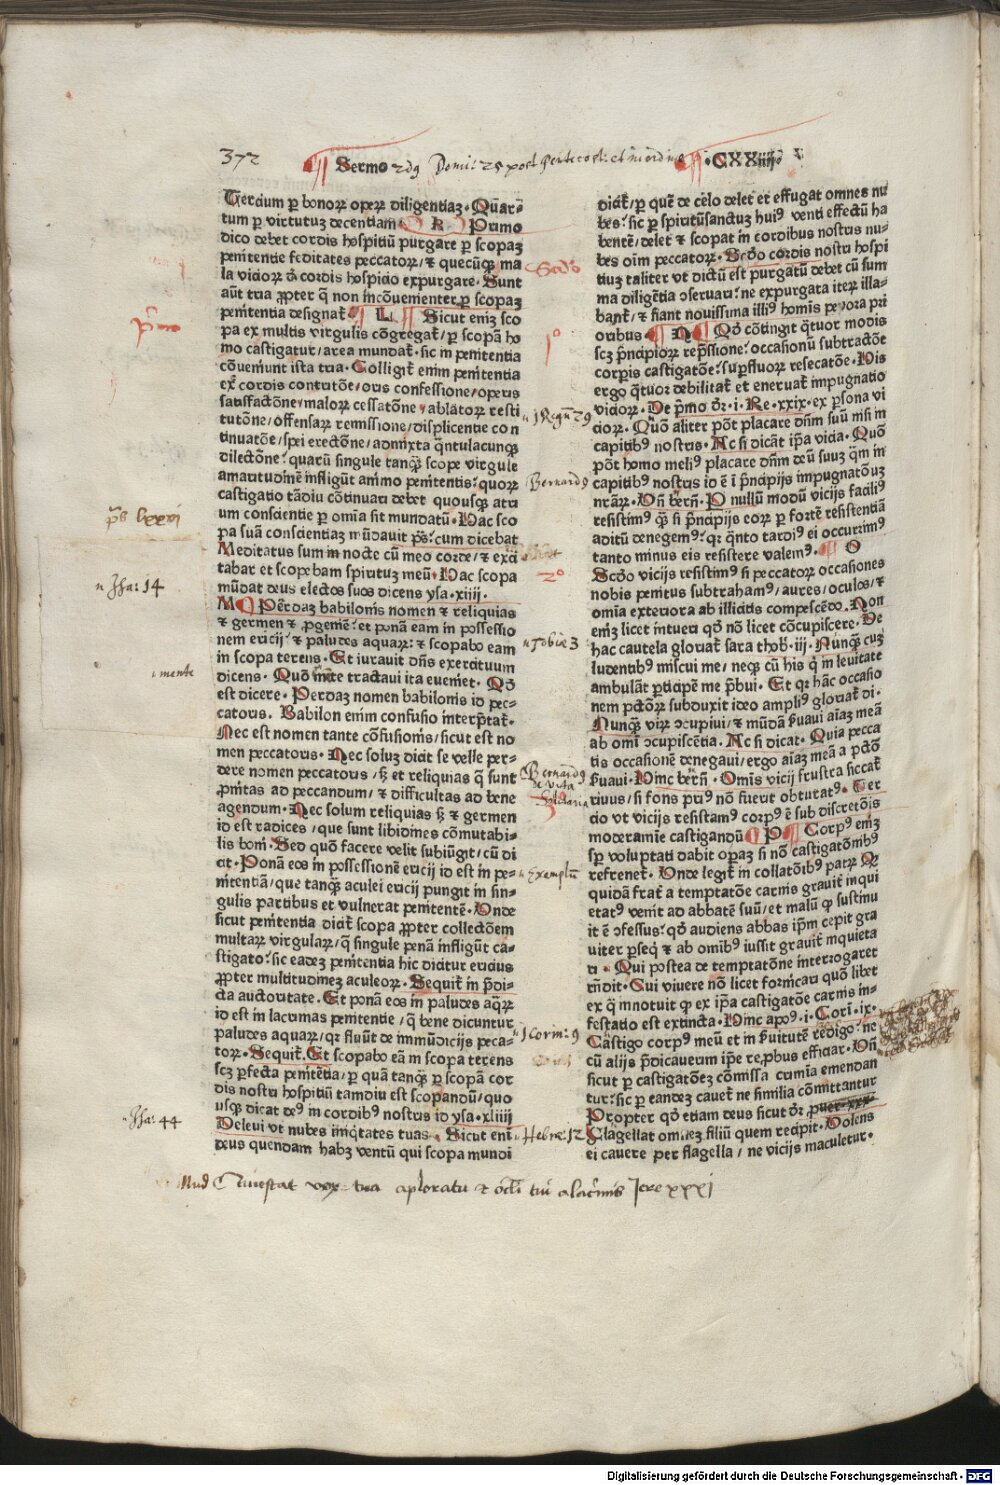 372
Sermo 2dꝰ Domi: 25 post pentecost: et in ordine CXXiiijꝰ
Tercium per bonoꝝ opeꝝ diligentiaꝫ. Quar-
tum ꝑ virtutuꝫ decentiam K Primo
dico debet cordis hospitiū purgare ꝑ scopaꝫ
penitentie feditates peccatoꝝ / ⁊ quecūqꝫ ma
la vicioꝝ de cordis hospicio expurgare. Sunt
aūt tria ꝓpter q̄ non incōuenienter ꝑ scopaꝫ
penitentia designat̄ L Sicut eniꝫ sco
pa ex multis virgulis cōgregat̄ / ꝑ scopā ho
mo castigatur / area mundat̄. sic in penitentia
cōueniunt ista tria. Colligit̄ enim penitentia
ex cordis contritōe / oris confessione / operis
satisfactōne / maloꝝ cessatōne / ablatoꝝ resti
tutōne / offensaꝝ remissione / displicentie con
tinuatōe / spei erectōne / admixta q̄ntulacunqꝫ
dilectōne: quarū singule tanqꝫ scope virgule
amaritudinē infligūt animo penitentis: quoꝝ
castigatio tādiu cōtinuari debet quousqꝫ atri
um conscientie ꝑ omnia sit mundatū. Hac sco
pa suā conscientiaꝫ mūdauit p̄s: cum dicebat
Meditatus sum in nocte cū meo corde / ⁊ exci
tabar et scopebam spirituꝫ meū. Hac scopa
mūdat deus electos suos dicens ysa. xiiij.
M Perdaꝫ babilonis nomen ⁊ reliquias
⁊ germen ⁊ ꝓgeniē: et ponā eam in possessio
nem ericij ⁊ paludes aquaꝝ: ⁊ scopabo eam
in scopa terens. Et iurauit dn̄s exercituum
dicens. Quō mēte tractaui ita eueniet. Qđ
est dicere. Perdaꝫ nomen babilonis id pec-
catoris. Babilon enim confusio interp̄tat̄.
Nec est nomen tante cōfusionis / sicut est no
men peccatoris. Nec soluꝫ dicit se velle per-
dere nomen peccatoris / sꝫ et reliquias q̄ sunt
ꝓnitas ad peccandum / ⁊ difficultas ad bene
agendum. Nec solum reliquias sꝫ ⁊ germen
id est radices / que sunt libidines cōmutabi-
lis boni. Sed quō facere velit subiūgit / cū di
cit. Ponā eos in possessionē ericij id est in pe-
nitentiā / que tanqꝫ aculei ericij pungit in sin-
gulis partibus et vulnerat penitentē. Unde
sicut penitentia dicit̄ scopa ꝓpter collectōem
multaꝝ virgulaꝝ / q̄ singule penā infligūt ca-
stigato: sic eadeꝫ penitentia hic dicitur ericius
ꝓpter multitudineꝫ aculeoꝝ. Sequit̄ in p̄di-
cta auctoritate. Et ponā eos in paludes aq̄ꝝ
id est in lacrimas penitentie / q̄ bene dicuntur
paludes aquaꝝ / qꝛ fluūt de immūdicijs pecca-
toꝝ. Sequit̄. Et scopabo eā in scopa terens
scꝫ ꝑfecta penitētia / ꝑ quā tanqꝫ ꝑ scopā cor
dis nostri hospitiū tamdiu est scopandū / quo
usqꝫ dicat deꝰ in cordibꝰ nostris id ysa. xliiij
Deleui vt nubes iniq̄tates tuas. Sicut eni
deus quendam habꝫ ventū qui scopa mundi
dicit̄ / ꝑ quē de celo delet et effugat omnes nu
bes: sic ꝑ spiritūsanctuꝫ huiꝰ venti effectū ha
bentē / delet ⁊ scopat in cordibus nostris nu-
bes oīm peccatoꝝ. Scđo cordis nostri hospi
tiuꝫ taliter vt dictū est purgatū debet cū sum
ma diligētia ɔseruari: ne expurgata iteꝝ illa-
bant̄ / ⁊ fiant nouissima illiꝰ hominis peiora pri
oribus N Qđ cōtingit q̄tuor modis
scꝫ p̄ncipioꝝ rep̄ssione: occasionū subtractōe
corꝑis castigatōe: suꝑfluoꝝ resecatōe. His
ergo q̄tuor debilitat̄ et eneruat̄ impugnatio
vicioꝝ. De p̄mo dr̄. i. Re. xxix. ex ꝑsona vi
cioꝝ. Quō aliter pōt placare dn̄m suū nisi in
capitibꝰ nostris. Ac si dicāt ip̄a vicia. Quō
pōt homo meliꝰ placare dn̄m deū suuꝫ q̄m in
capitibꝰ nostris id ē ī p̄ncipijs impugnatōuꝫ
nr̄aꝝ. Vn̄ bern̄. P nullū modū vicijs faciliꝰ
resistimꝰ qꝫ si p̄ncipijs eoꝝ ꝑ fortē resistentiā
aditū denegemꝰ: qꝛ q̄nto tardiꝰ ei occurrimꝰ
tanto minus eis resistere valemꝰ. O
Scđo vicijs resistimꝰ si peccatoꝝ occasiones
nobis penitus subtrahamꝰ / aures / oculos / ⁊
omīa exteriora ab illicitis compescēdo. Non
eniꝫ licet intueri qđ nō licet cōcupiscere. De
hac cautela gloriat̄ sara thob. iij. Nunqꝫ cuꝫ
ludentibꝰ miscui me / neqꝫ cū his q̄ in leuitate
ambulāt ꝑticipē me p̄bui. Et qꝛ hāc occasio
nem pctōꝝ subduxit ideo ampliꝰ gloriat̄ di.
Nunqꝫ viꝝ ɔcupiui / ⁊ mūdā ẜuaui aīaꝫ meā
ab omī ɔcupiscētia. Ac si dicat. Quia pecca
tis occasionē denegaui / ergo aīaꝫ meā a pctō
ẜuaui. Hinc bern̄. Omīs vicij frustra siccat̄
riuus / si fons priꝰ nō fuerit obturatꝰ. Ter
cio vt vicijs resistamꝰ corpꝰ ē sub discretōis
moderamīe castigandū P Corpꝰ eniꝫ
sꝑ voluptati dabit oꝑaꝫ si nō castigatōnibꝰ
refrenet̄. Unde legit̄ in collatōibꝰ patꝝ qꝫ
quidā frat̄ a temptatōe carnis grauit̄ inqui
etatꝰ venit ad abbatē suū / et malū qđ sustinu
it ē ɔfessus: qđ audiens abbas ip̄m cepit gra
uiter ꝑseq̄ ⁊ ab omībꝰ iussit grauit̄ inquieta
ri. Qui postea de temptatōne interrogaret
rn̄dit. Cui viuere nō licet fornicari quō libet
ex q̄ innotuit qđ ex ip̄a castigatōe carnis in-
festatio est extincta. Hinc apoꝰ. i. Cori. ix.
Castigo corpꝰ meū et in ẜuitutē redigo: ne
cū alijs p̄dicauerim ip̄e reꝓbus efficiar. Vn̄
sicut ꝑ castigatōeꝫ cōmissa crimīa emendan
tur: sic ꝑ eandeꝫ cauet̄ ne similia cōmittantur
Propter qđ etiam deus sicut dr̄. puer xxx.
Flagellat omneꝫ filiū quem recipit. Volens
ei cauere per flagella / ne vicijs maculetur.
p̄mo
p̄s lxxvi
Isa: 14
mente
Isa: 44
Scdo
1º
1 Regū 29
Bernardꝰ
2º
Tobie 3
Bernardꝰ
de vita
Solitaria
3
Exemplū
1 Corin: 9
Hebre: 12